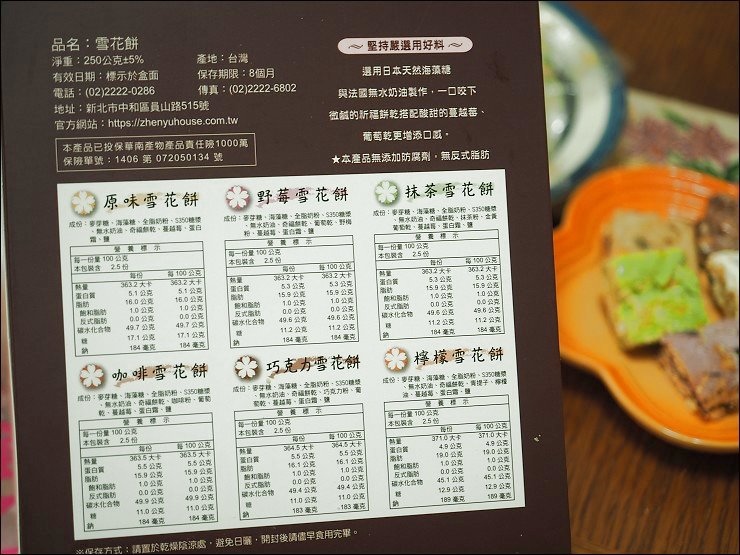 品名：雪花餅
淨重：250公克±5%　產地：台灣
有效日期：標示於盒面　保存期限：8個月
電話：(02)2222-0286　傳真：(02)2222-6802
地址：新北市中和區員山路515號
官方網站：https://zhenyuhouse.com.tw
本產品已投保華南產物產品責任險1000萬
保險單號：1406 第 072050134 號
堅持嚴選用好料
選用日本天然海藻糖
與法國無水奶油製作，一口咬下
微鹹的祈福餅乾搭配酸甜的蔓越莓、
葡萄乾更增添口感。
★本產品無添加防腐劑，無反式脂肪
原味雪花餅
成份：麥芽糖、海藻糖、全脂奶粉、S350糖漿
、無水奶油、奇福餅乾、蔓越莓、蛋白
霜、鹽
營養標示
每一份量 100 公克
本包裝含 2.5 份
每份 每 100 公克
熱量 363.2 大卡 363.2 大卡
蛋白質 5.1 公克 5.1 公克
脂肪 16.0 公克 16.0 公克
飽和脂肪 1.0 公克 1.0 公克
反式脂肪 0.0 公克 0.0 公克
碳水化合物 49.7 公克 49.7 公克
糖 17.1 公克 17.1 公克
鈉 184 毫克 184 毫克
野莓雪花餅
成份：麥芽糖、海藻糖、全脂奶粉、S350糖漿
、無水奶油、奇福餅乾、葡萄乾、野梅
粉、蔓越莓、蛋白霜、鹽
營養標示
每一份量 100 公克
本包裝含 2.5 份
每份 每 100 公克
熱量 363.2 大卡 363.2 大卡
蛋白質 5.3 公克 5.3 公克
脂肪 15.9 公克 15.9 公克
飽和脂肪 1.0 公克 1.0 公克
反式脂肪 0.0 公克 0.0 公克
碳水化合物 49.6 公克 49.6 公克
糖 11.2 公克 11.2 公克
鈉 184 毫克 184 毫克
抹茶雪花餅
成份：麥芽糖、海藻糖、全脂奶粉、S350糖漿
、無水奶油、奇福餅乾、抹茶粉、金黃
葡萄乾、蔓越莓、蛋白霜、鹽
營養標示
每一份量 100 公克
本包裝含 2.5 份
每份 每 100 公克
熱量 363.2 大卡 363.2 大卡
蛋白質 5.3 公克 5.3 公克
脂肪 15.9 公克 15.9 公克
飽和脂肪 1.0 公克 1.0 公克
反式脂肪 0.0 公克 0.0 公克
碳水化合物 49.6 公克 49.6 公克
糖 11.2 公克 11.2 公克
鈉 184 毫克 184 毫克
咖啡雪花餅
成份：麥芽糖、海藻糖、全脂奶粉、S350糖漿
、無水奶油、奇福餅乾、咖啡粉、葡萄
乾、蔓越莓、蛋白霜、鹽
營養標示
每一份量 100 公克
本包裝含 2.5 份
每份 每 100 公克
熱量 363.5 大卡 363.5 大卡
蛋白質 5.5 公克 5.5 公克
脂肪 15.9 公克 15.9 公克
飽和脂肪 1.0 公克 1.0 公克
反式脂肪 0.0 公克 0.0 公克
碳水化合物 49.9 公克 49.9 公克
糖 11.0 公克 11.0 公克
鈉 184 毫克 184 毫克
巧克力雪花餅
成份：麥芽糖、海藻糖、全脂奶粉、S350糖漿
、無水奶油、奇福餅乾、巧克力粉、葡
萄乾、蔓越莓、蛋白霜、鹽
營養標示
每一份量 100 公克
本包裝含 2.5 份
每份 每 100 公克
熱量 364.5 大卡 364.5 大卡
蛋白質 5.5 公克 5.5 公克
脂肪 16.1 公克 16.1 公克
飽和脂肪 1.0 公克 1.0 公克
反式脂肪 0.0 公克 0.0 公克
碳水化合物 49.6 公克 49.4 公克
糖 11.0 公克 11.0 公克
鈉 183 毫克 183 毫克
檸檬雪花餅
成份：麥芽糖、海藻糖、全脂奶粉、S350糖漿
、無水奶油、奇福餅乾、青提子、檸檬
油、蔓越莓、蛋白霜、鹽
營養標示
每一份量 100 公克
本包裝含 2.5 份
每份 每 100 公克
熱量 371.0 大卡 371.0 大卡
蛋白質 4.9 公克 4.9 公克
脂肪 19.0 公克 19.0 公克
飽和脂肪 1.0 公克 1.0 公克
反式脂肪 0.0 公克 0.0 公克
碳水化合物 45.1 公克 45.1 公克
糖 12.9 公克 12.9 公克
鈉 189 毫克 189 毫克
※保存方式：請置於乾燥陰涼處，避免日曬，開封後請儘早食用完畢。